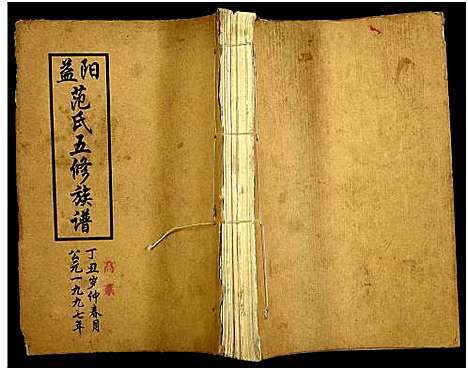 益阳
范氏五修族谱
丁丑岁仲春月
公元一九九七年